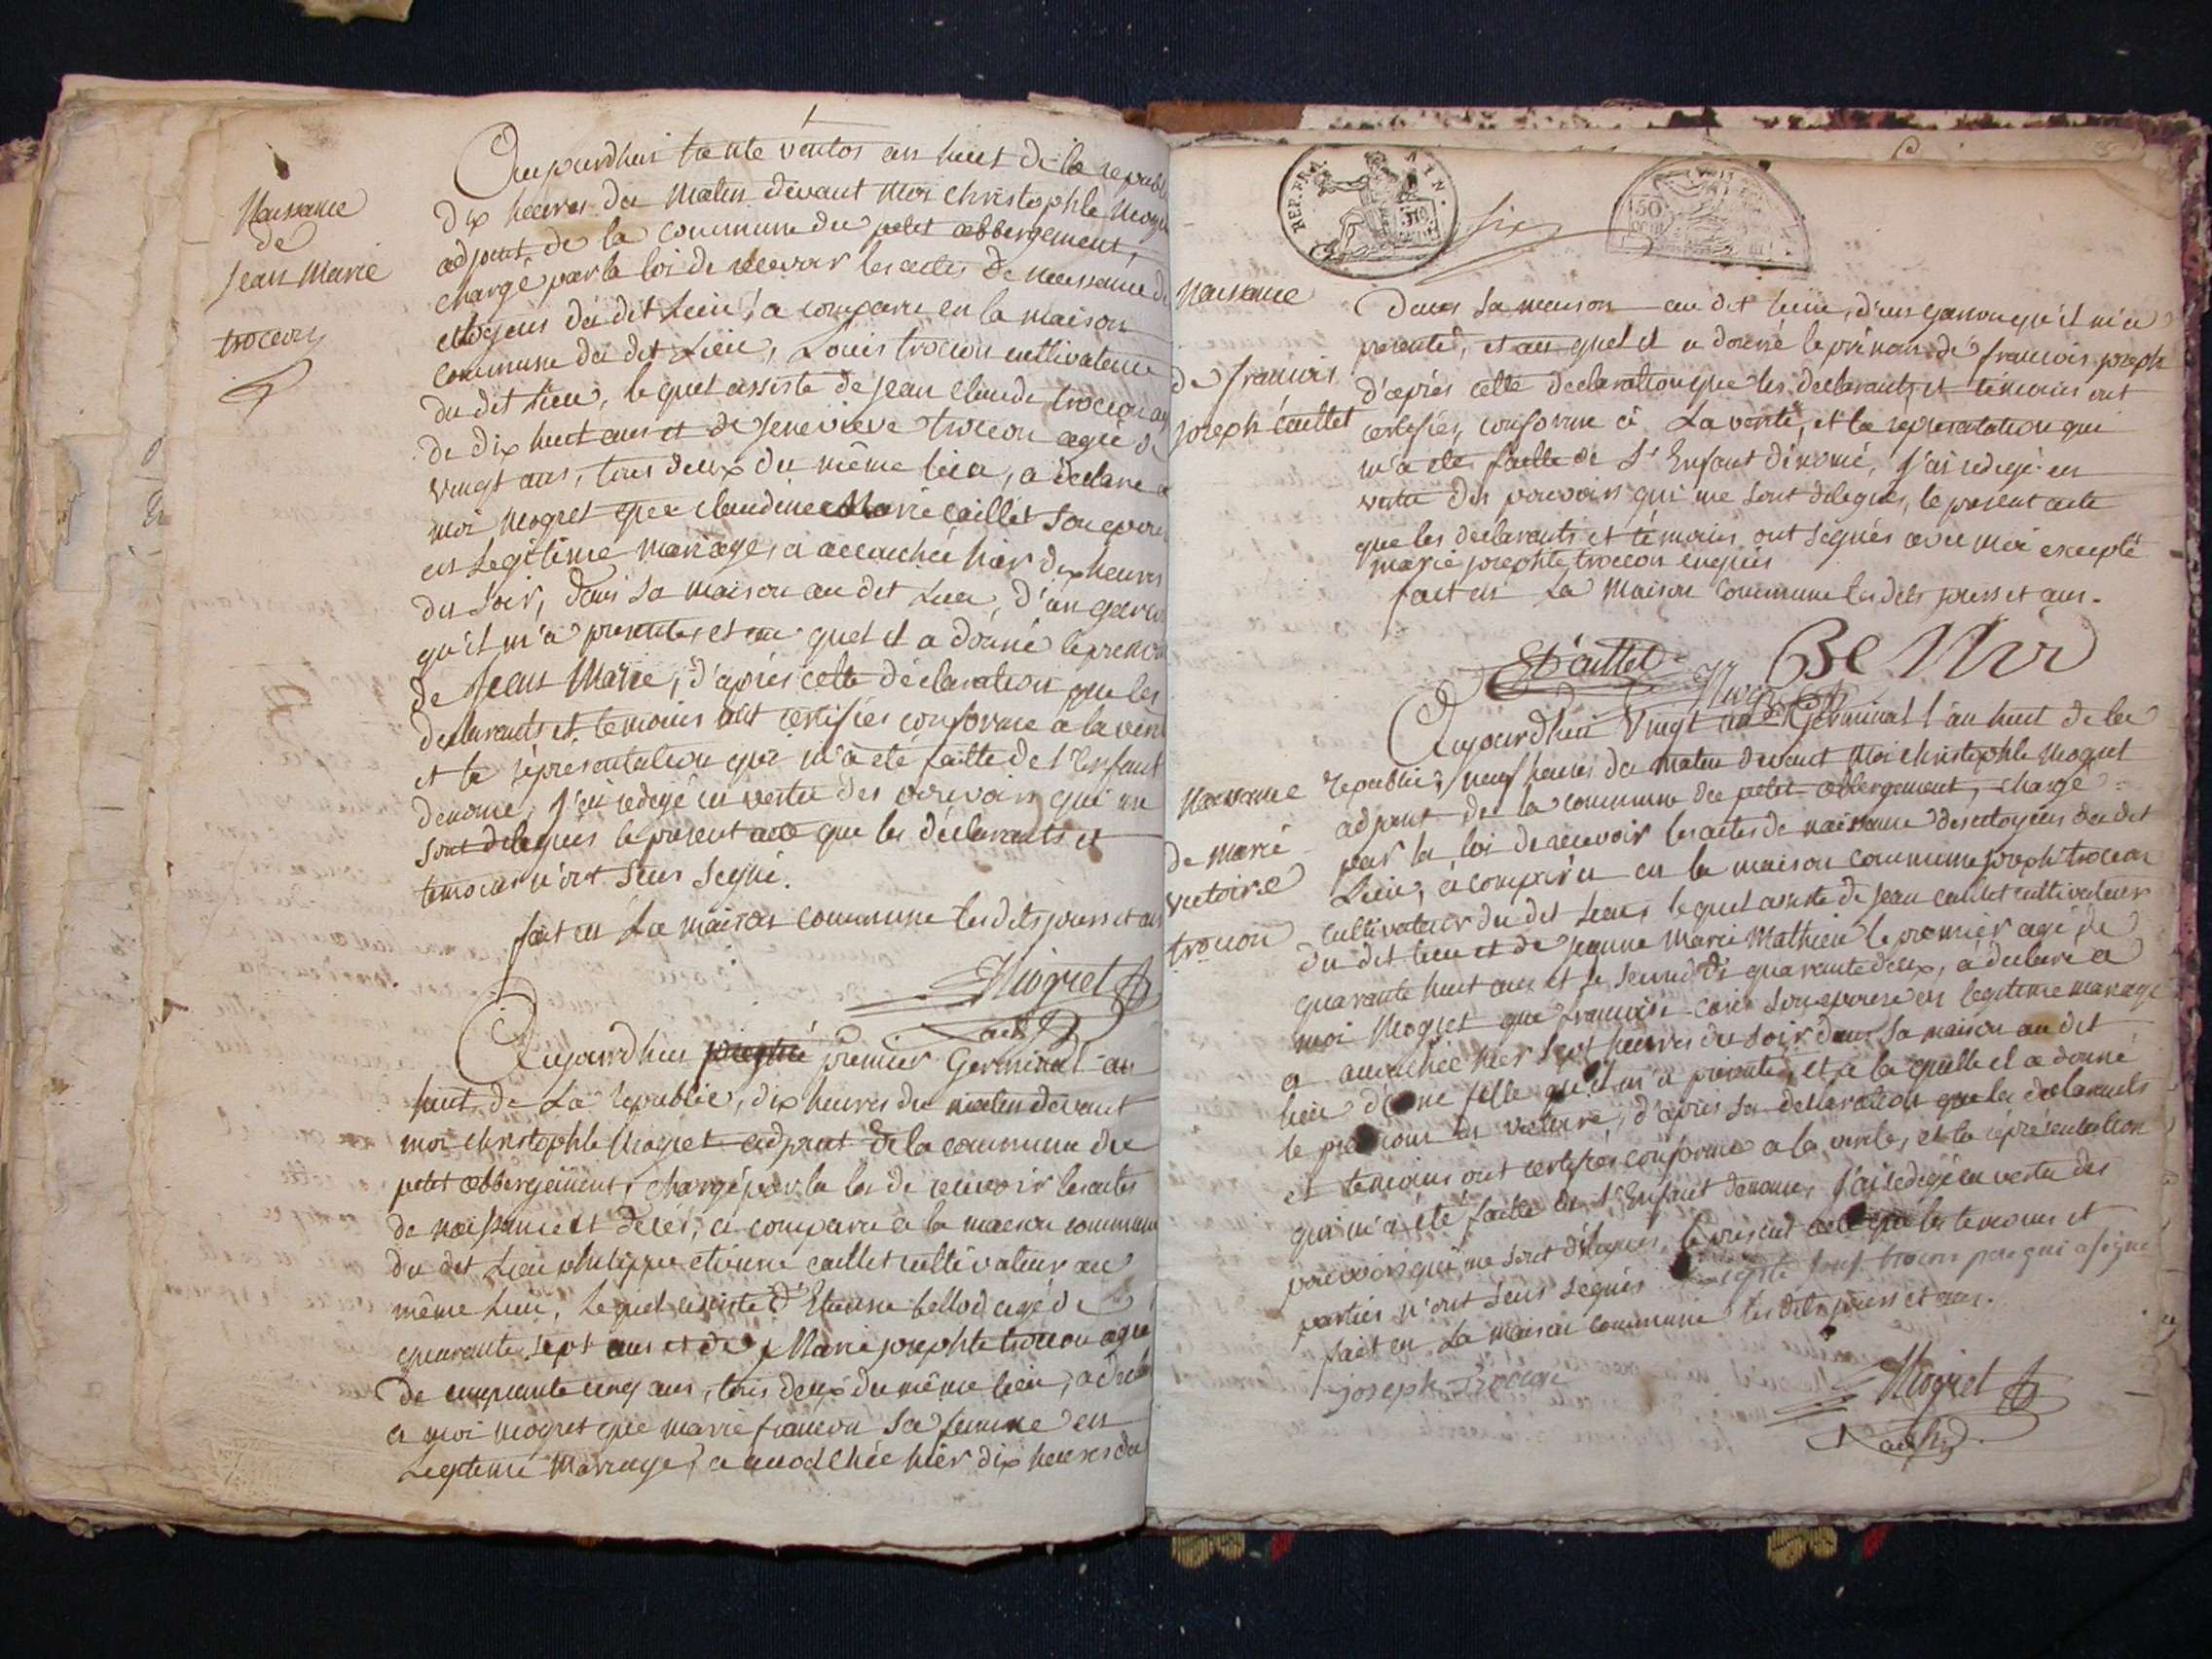 Naissance
de
Jean Marie
trocon
Aujourdhui trente ventos an huit de la republi
dix heures du Matin devant Moi christophle Mogr
adjoint de la commune du petit abbergement,
chargé par la loi de recevoir les actes de naissance d
citoyens du dit Lieu, a comparu en la maison
commune du dit Lieu, Louis trocon cultivateur
du dit Lieu, le quel assiste de jean claude trocon ag
de dix huit ans et de jeneviève trocon agée d
vingt ans, tous deux du même lieu, a déclaré a
moi Mogret que claudine Marie caillet son epous
en Legitime mariage, a accouchée hier dix heures
du soir, dans sa maison au dit Lieu, d'un garco
qu'il m'a presentes et au quel il a donné le prenom
de Jean Marie, d'après cette déclaration que les
declarants et temoins ont certifies conforme a la veri
et la représentation qui m'a eté faitte de l'enfant
denomé, j'ai redegé en vertu des pouvoirs qui me
sont delegués le present acte que les déclarants et
temoins n'ont seus segné.
fait en La maison commune les dits jours et an
Mogret
adj
Aujourdhui premier Germinal an
huit de La republic, dix heures du matin devant
moi christophle Mogret adjoint de la commune du
petit abbergement, chargé par la loi de recevoir les actes
de naissance et décés, a comparu a la maison commune
du dit Lieu philippe etienne caillet cultivateur au
même Lieu, Le quel assiste d'Etienne bellod agé de
quarante sept ans et de Marie josephte trocon agée
de cinquante cinq ans, tous deux du même lieu, a decla
a moi mogret que marie francon sa femme en
Legitime Mariage, a accouchée hier dix heures du
REP. FRA. AIN
six
50
cent
Naissance
de francois
joseph caillet
dans sa maison au dit lieu, d'un garcon qu'il m'a
presenté, et au quel il a donné le prénom de francois joseph
d'après cette declaration que les declarants et témoins ont
certifiés, conforme a La verité, et la représentation qui
m'a eté faitte de L'Enfant dénomé, j'ai redegé en
vertu des pouvoirs qui me sont delegués, le present acte
que les declarants et témoins ont segnés avec moi excepté
marie josephte trocon enquis
fait en La Maison commune les dits jours et ans.
Caillet
Aujourdhui Vingt Germinal l'an huit de la
republic, neuf heures du matin devant Moi christophle Mogret
adjoint de la commune du petit abbergement, chargé
par la loi de recevoir les actes de naissance des citoyens du dit
Lieu, a comparu en la maison commune joseph trocon
cultivateur du dit Lieu le quel assiste de Jean caillet cultivateur
du dit lieu et de jeanne Marie Mathieu le premier agé de
quarante huit ans et la seconde de quarante deux, a déclaré a
moi Mogret que son epouse en legitime mariage
a accouchée hier sept heures du soir dans sa maison au dit
lieu d'une fille qu'il m'a presenté, et a la quelle il a donné
le prenom de victoire, d'après sa declaration que les declarants
et temoins ont certifies conforme a la verité, et la représentation
qui m'a été faitte de l'Enfant denomé, j'ai redegé en vertu des
pouvoirs qui me sont délégués, le present acte que les temoins et
parties n'ont seus segnés sauf trocon pere qui a signe
fait en La maison commune les dits jours et an.
Naissance
de marie
victoire
trocon
joseph Trocon
Mogret
adj